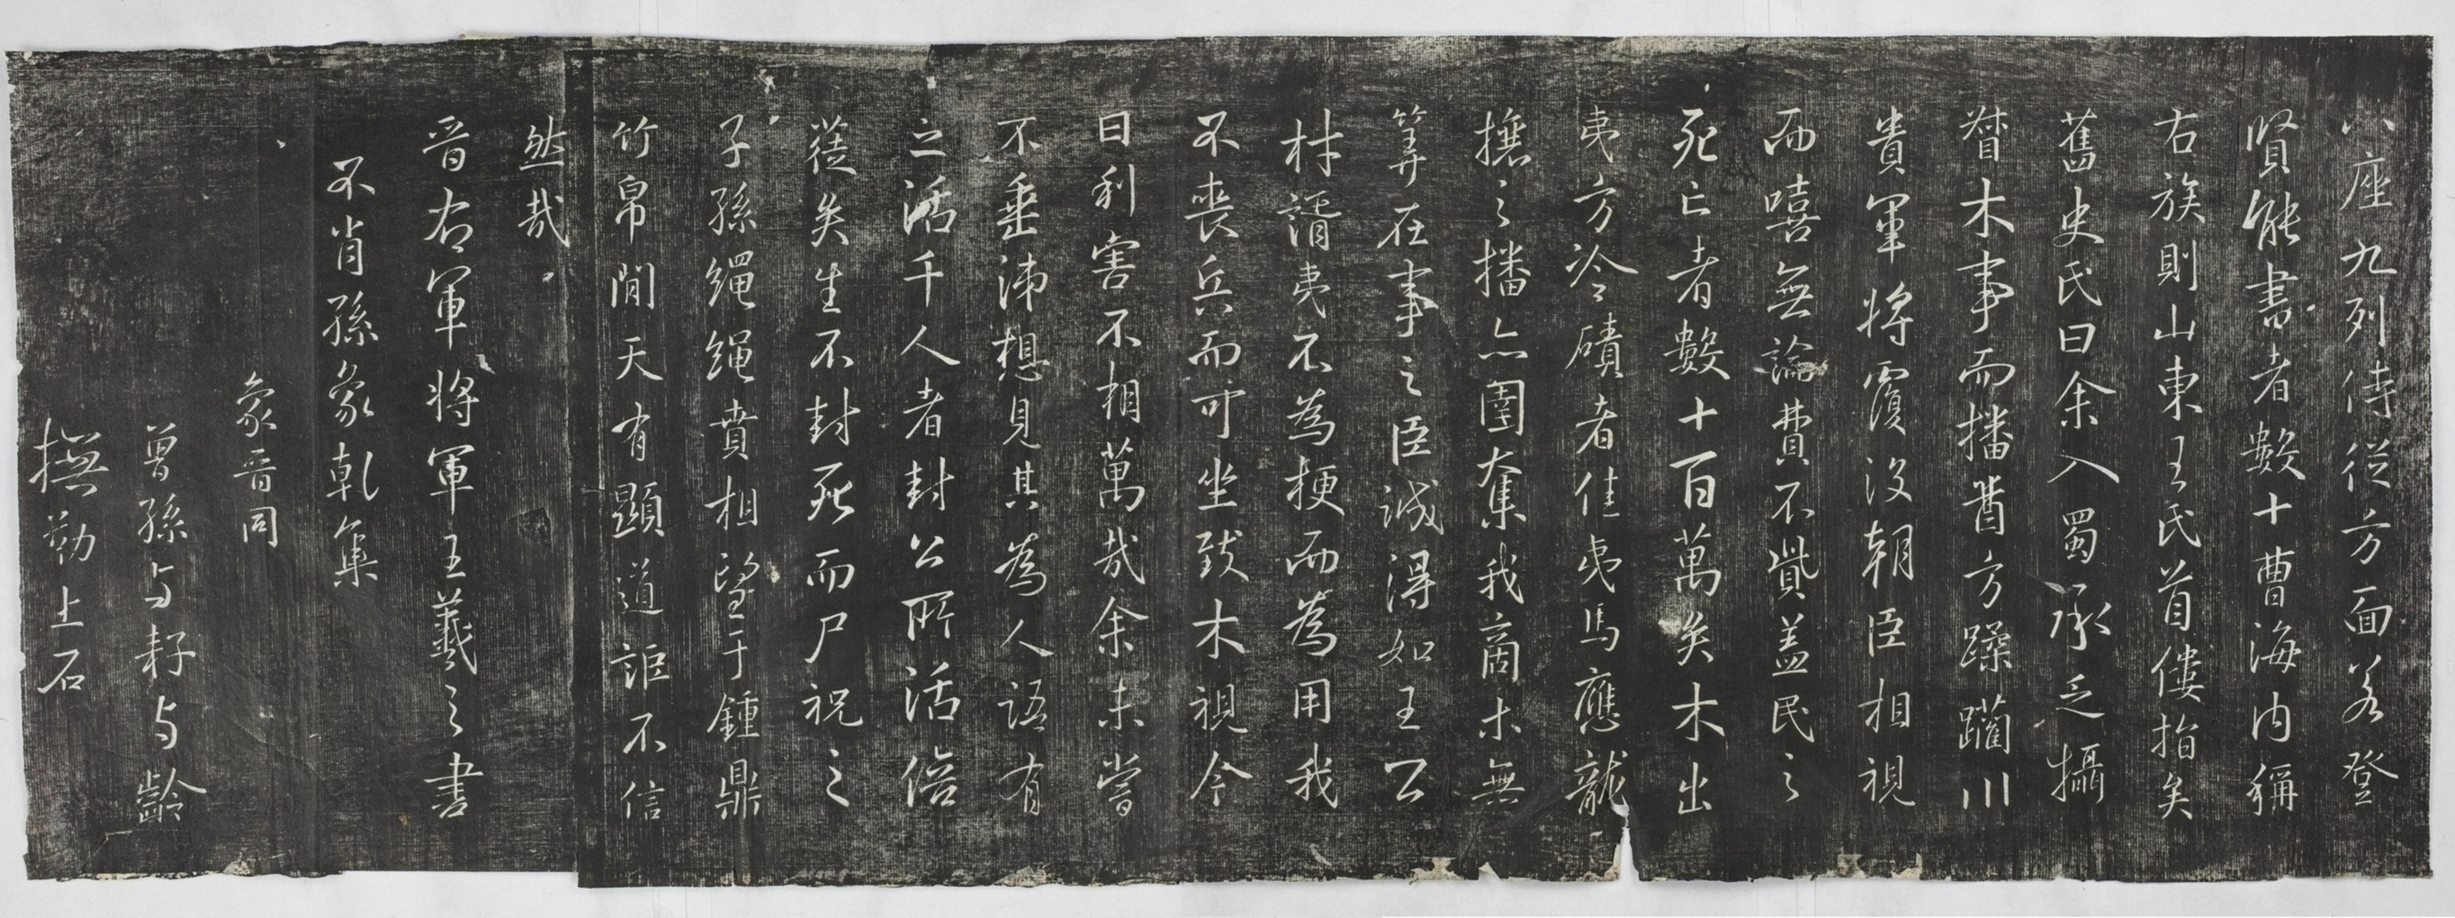 八座九列侍從方面以登
賢能書者數十曹海内稱
右族則山東王氏首僂指矣
舊史氏曰余入蜀承乏攝
督木事而播酋方躁躪川
貴軍將覆沒朝臣相視
而嘻無論費不貲盖民之
死亡者數十百萬矣木出
夷方冷磧者住夷馬應龍
攘之播亦圉奪我商木無
筭在事之臣誠得如王公
材謂夷不為梗而為用我
不喪兵而可坐致木視今
曰利害不相萬哉余未嘗
不垂涕想見其為人語有
之活千人者封公所活倍
蓰矣生不封死而尸祝之
子孫繩繩賁相望于鍾鼎
竹帛間天有顯道詎不信
然哉
晉右軍將軍王羲之書
不肖孫象乾集
象晉同
曾孫与籽与齡
撫勒上石